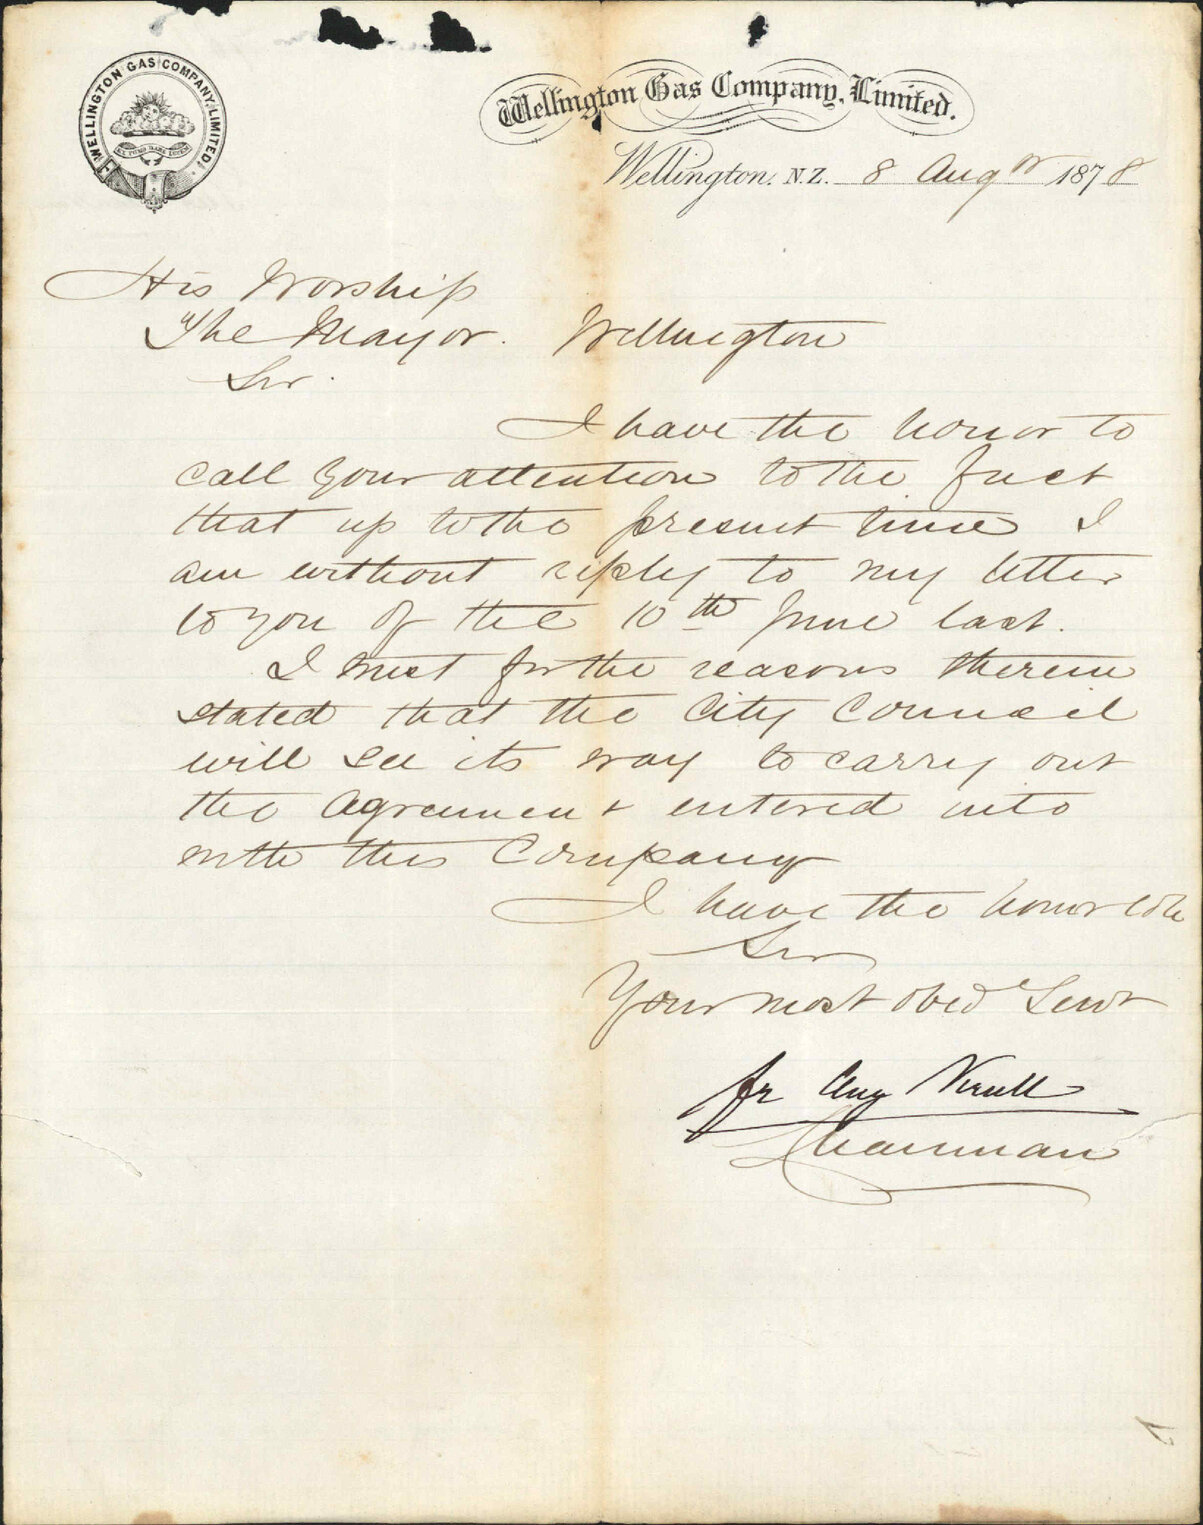 WELLINGTON GAS COMPANY, LIMITED.
EX FUMO DARE LUCEM
Wellington Gas Company, Limited.
Wellington, N.Z. 8 Augt 1878
His Worship
The Mayor. Wellington
Sir.
I have the honor to
call your attention to the fact
that up to the present time I
am without reply to my letter
to you of the 10th June last.
I trust for the reasons therein
stated that the City Council
will see its way to carry out
the Agreement entered into
with this Company
I have the honor to be
Sir
Your most obed Servt
Chairman